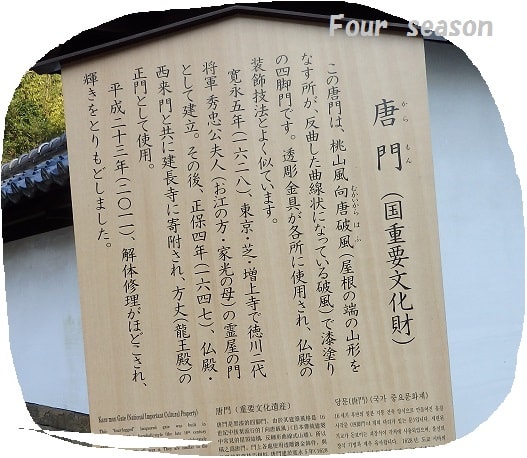 Four season
唐門(国重要文化財)
からもん
この唐門は、桃山風向唐破風(屋根の端の山形を
むかいからはふ
なす所が、反曲した曲線状になっている破風)で漆塗り
の四脚門です。透彫金具が各所に使用され、仏殿の
装飾技法とよく似ています。
寛永五年(一六二八)、東京・芝・増上寺で徳川二代
将軍 秀忠公夫人(お江の方・家光の母)の霊屋の門
として建立。その後、正保四年(一六四七)、仏殿・
西来門と共に建長寺に寄附され、方丈(龍王殿)の
正門として使用。
平成二十三年(二〇一一)、解体修理がほどこされ、
輝きをとりもどしました。
Kara-mon Gate (National Important Cultural Property)
唐門(重要文化遺産)
당문(唐門) (국가 중요문화재)